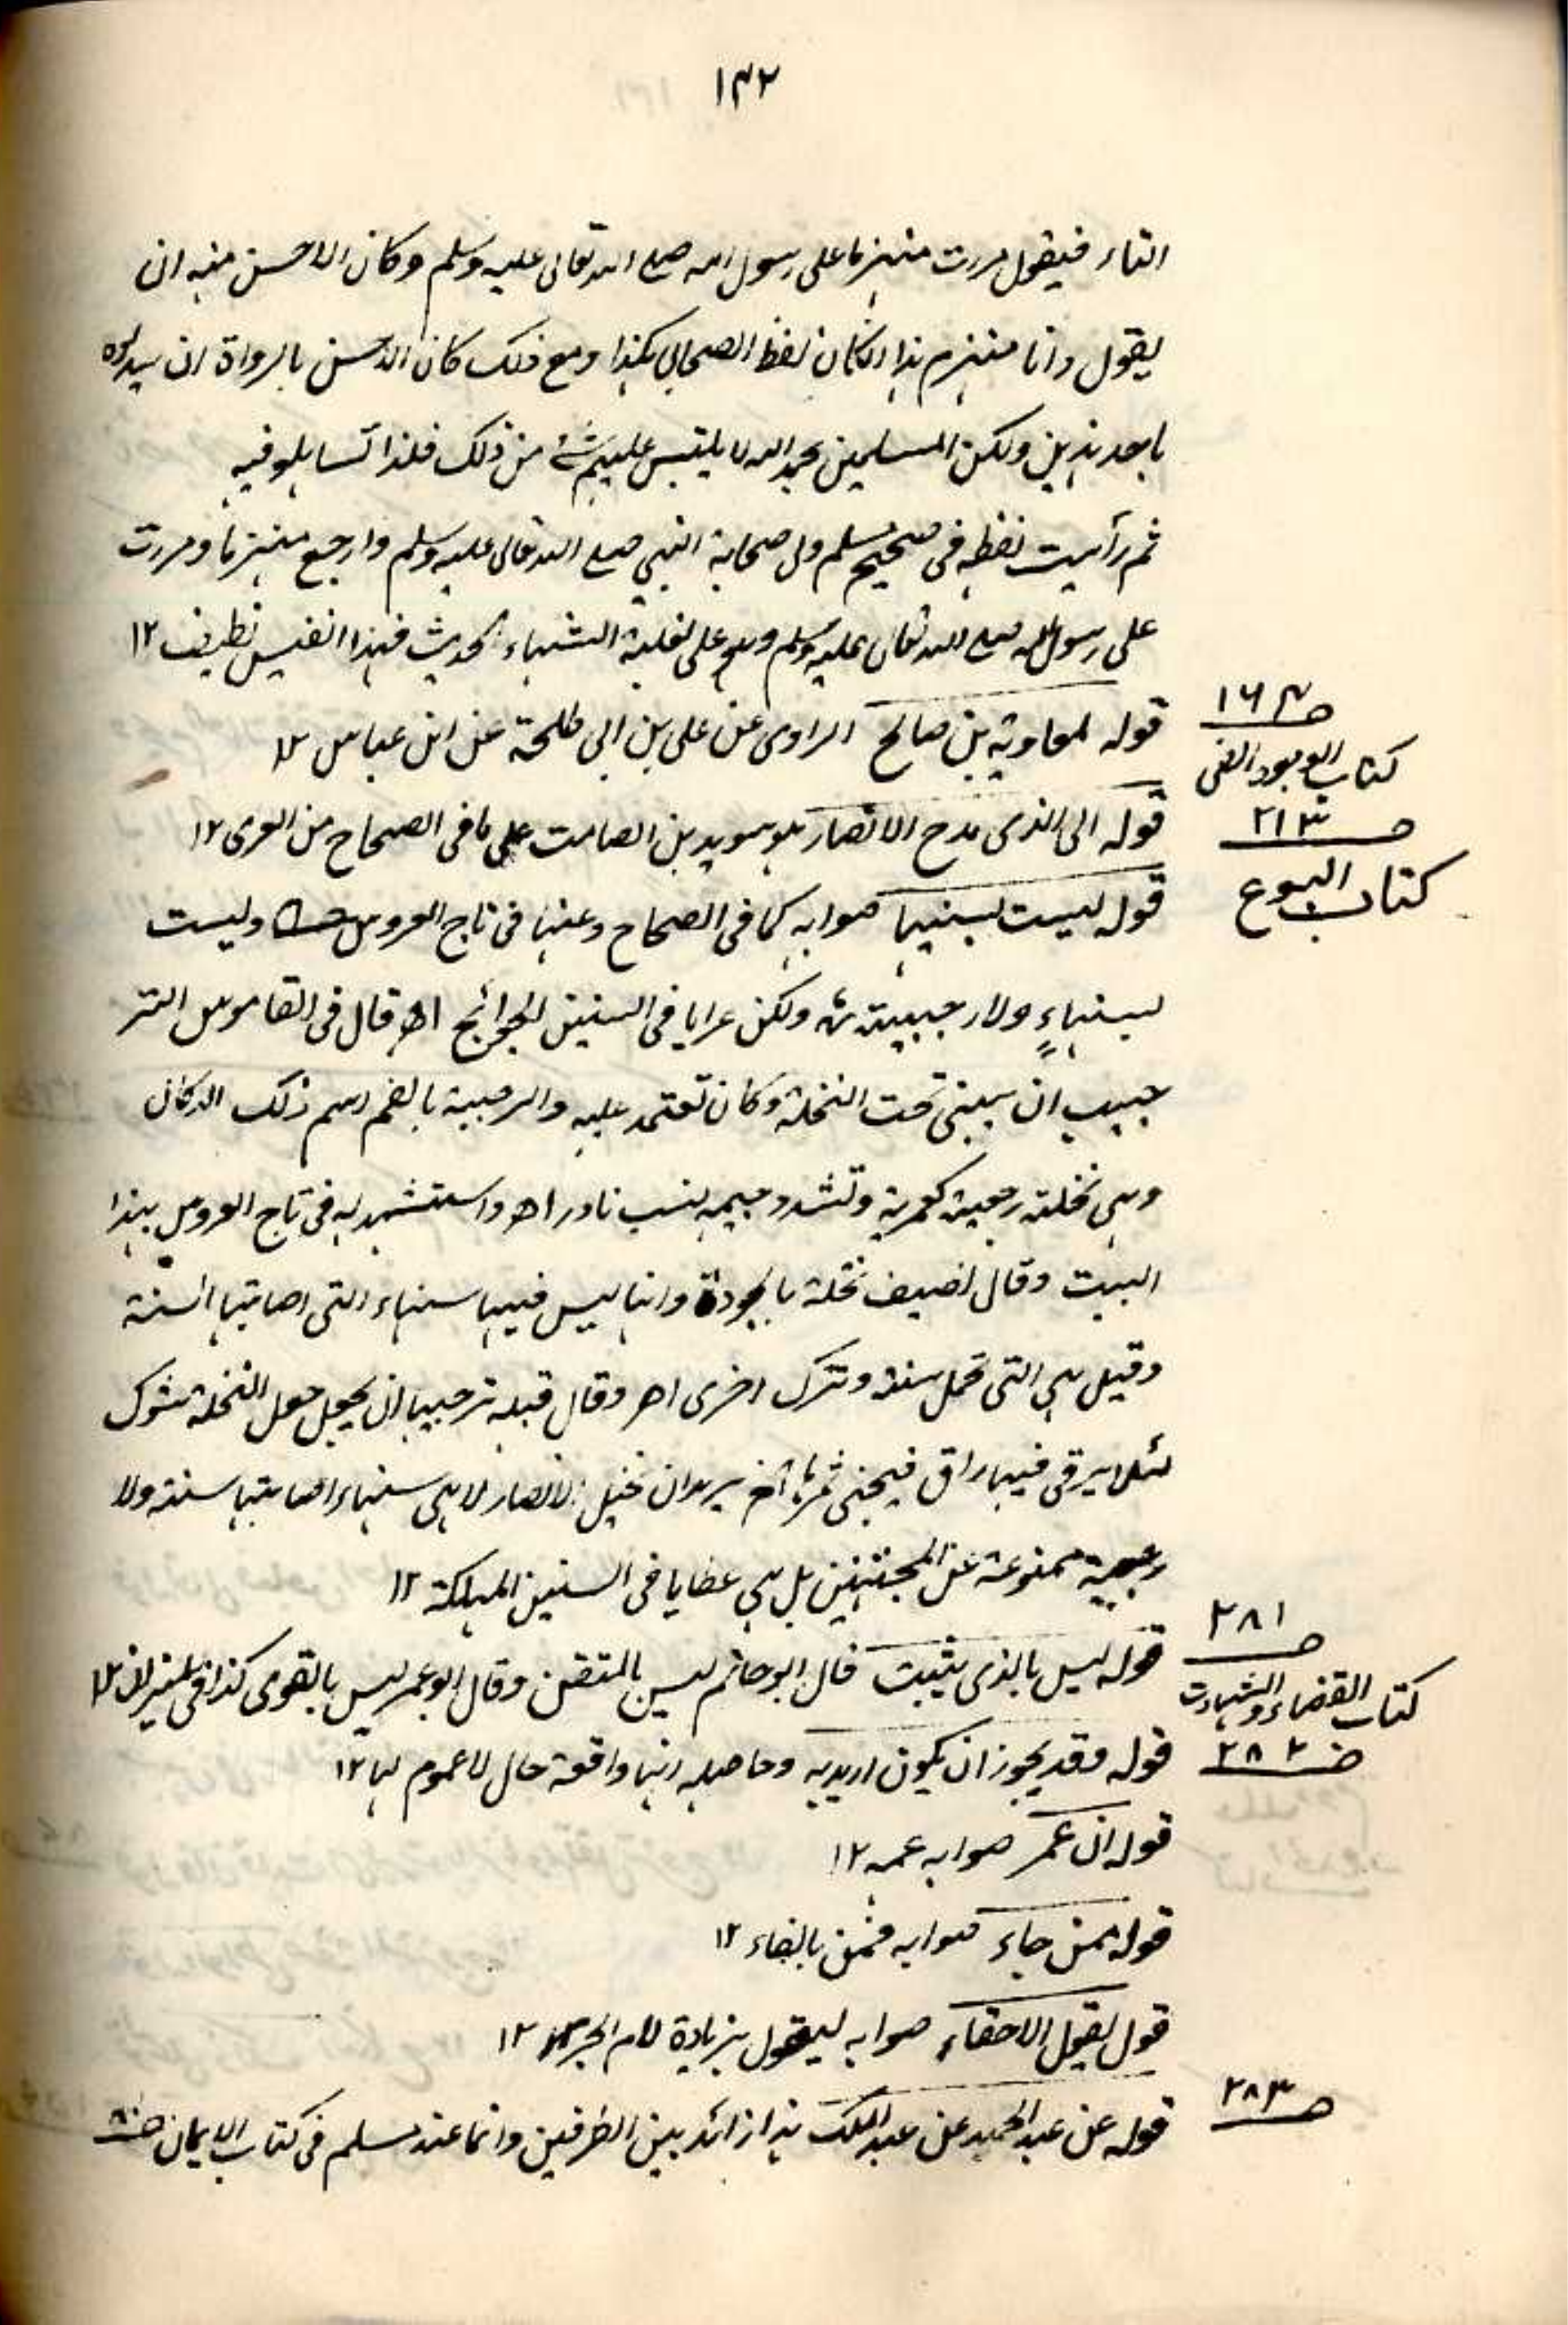 ١٣٢
التاء فيقول مررت منهزما على رسول الله صلى الله تعالى عليه وسلم وكان الاحسن منه ان
يقول وانا منهزم هذا ان كان لفظ الصحابي هكذا ومع ذلك كان الاحسن بالرواة ان يبدلوه
باحد هذين ولكن المسلمين بحمد الله لا يلتبس عليهم شئ من ذلك فلذا تساهلوا فيه
ثم رأيت لفظه في صحيح مسلم ولى صحابة النبي صلى الله تعالى عليه وسلم وارجع منهزما ومررت
على رسول الله صلى الله تعالى عليه وسلم وهو على بغلته الشهباء الحديث فهذا نفيس نظيف ١٢
ص ١٦٤
قوله لمعاوية بن صالح الراوى عن على بن ابي طلحة عن ابن عباس ١٢
كتاب الفئ
ص ٢١٣
قوله الى الذى مدح الانصار هو سويد بن الصامت على ما في الصحاح من العرى ١٢
كتاب البيوع
قوله ليست بسنيها صوابه كما في الصحاح وعنها في تاج العروس وليست
بسنهاءٍ ولا رجبية ولكن عرايا في السنين الجوائح اھ قال في القاموس التر
جيب ان يبنى تحت النخلة دكان تعتمد عليه والرجبة بالضم اسم ذلك الدكان
وهي نخلة رجبية كعمرية وتشدد جيمه نسب نادر اھ واستشهد له في تاج العروس بهذا
البيت وقال يصف نخلة بالجودة وانها ليس فيها سنهاء التى اصابتها السنة
وقيل هي التى تحمل سنة وتترك اخرى اھ وقال قبله ترجيبها ان يجعل حول النخلة شوك
لئلا يرقى فيها راق فيجنى ثمرها الخ يريد ان نخيل الانصار لا هي سنهاء اصابتها سنة ولا
رجبية ممنوعة عن المجتنين بل هي عطايا في السنين المهلكة ١٢
ص ٢٨١
كتاب القضاء والشهادت
قوله ليس بالذى يثبت قال ابو حاتم ليس بالمتقن وقال ابو عمر ليس بالقوى كذا في الميزان ١٢
ص ٢٨٢
قوله وقد يجوز ان يكون اريد به وحاصله انها واقعة حال لا عموم لها ١٢
قوله ان عمر صوابه عمه ١٢
قوله ممن جاء صوابه فمن بالفاء ١٢
قول يقول الاحقاء صوابه ليقول بزيادة لام الجر ١٢
ص ٢٨٣
قوله عن عبد الحميد عن عبد الملك هذا زائد بين الطرفين وانما عند مسلم في كتاب الايمان